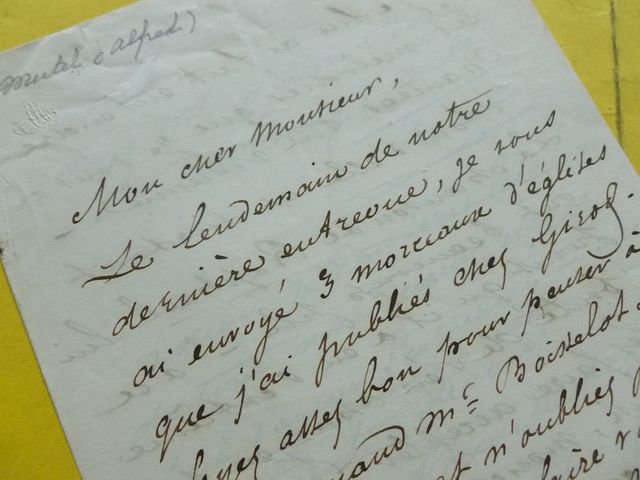 (Alfred)
Mon cher Monsieur,
Le lendemain de notre
dernière entrevue, je vous
ai envoyé 3 morceaux d'églises
que j'ai publiés chez Girod.
assez bon pour penser à
quand Mr Boisselot
et n'oubliez